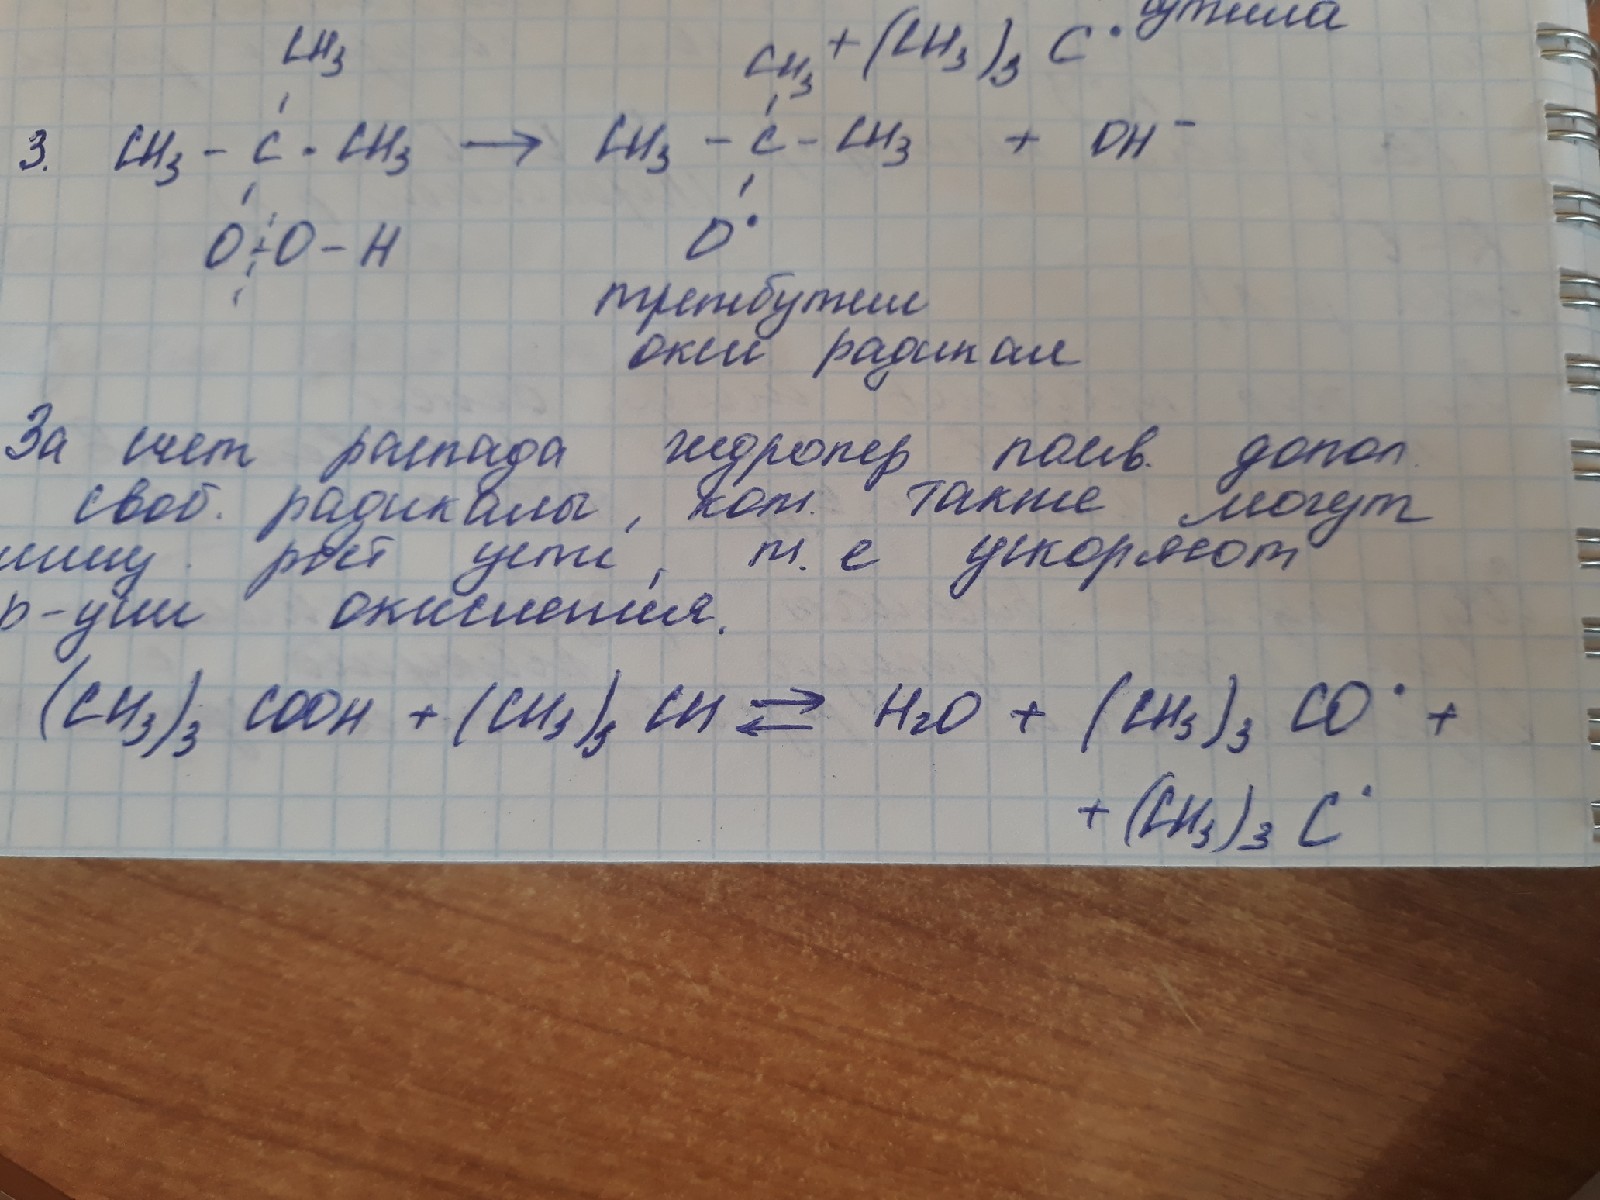 + (CH3)3 C•
CH3 CH3
3. CH3 - C - CH3 → CH3 - C - CH3 + OH⁻
O÷O-H O•
третбутил
окси радикал
За счет распада гидропер появ. допол.
своб. радикалы, кот. также могут
рост цепи, т. е ускоряют
р-ции окисления.
(CH3)3 COOH + (CH3)3 CH ⇄ H2O + (CH3)3 CO• +
+ (CH3)3 C•